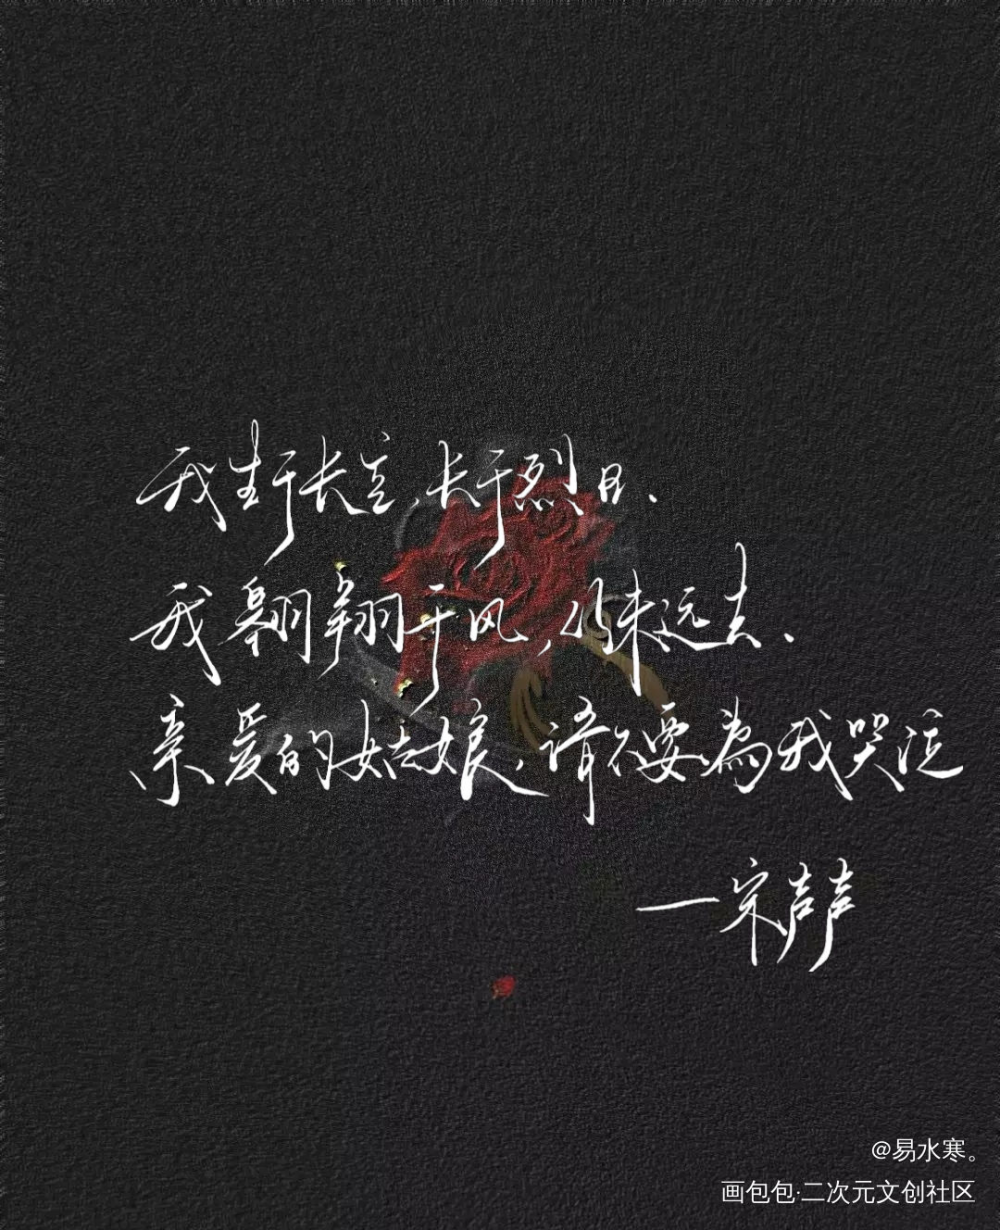 我生于长空，长于烈日、
我翱翔于风，从未远去、
亲爱的姑娘，请不要為我哭泣
—宋声声
@易水寒。
画包包·二次元文创社区